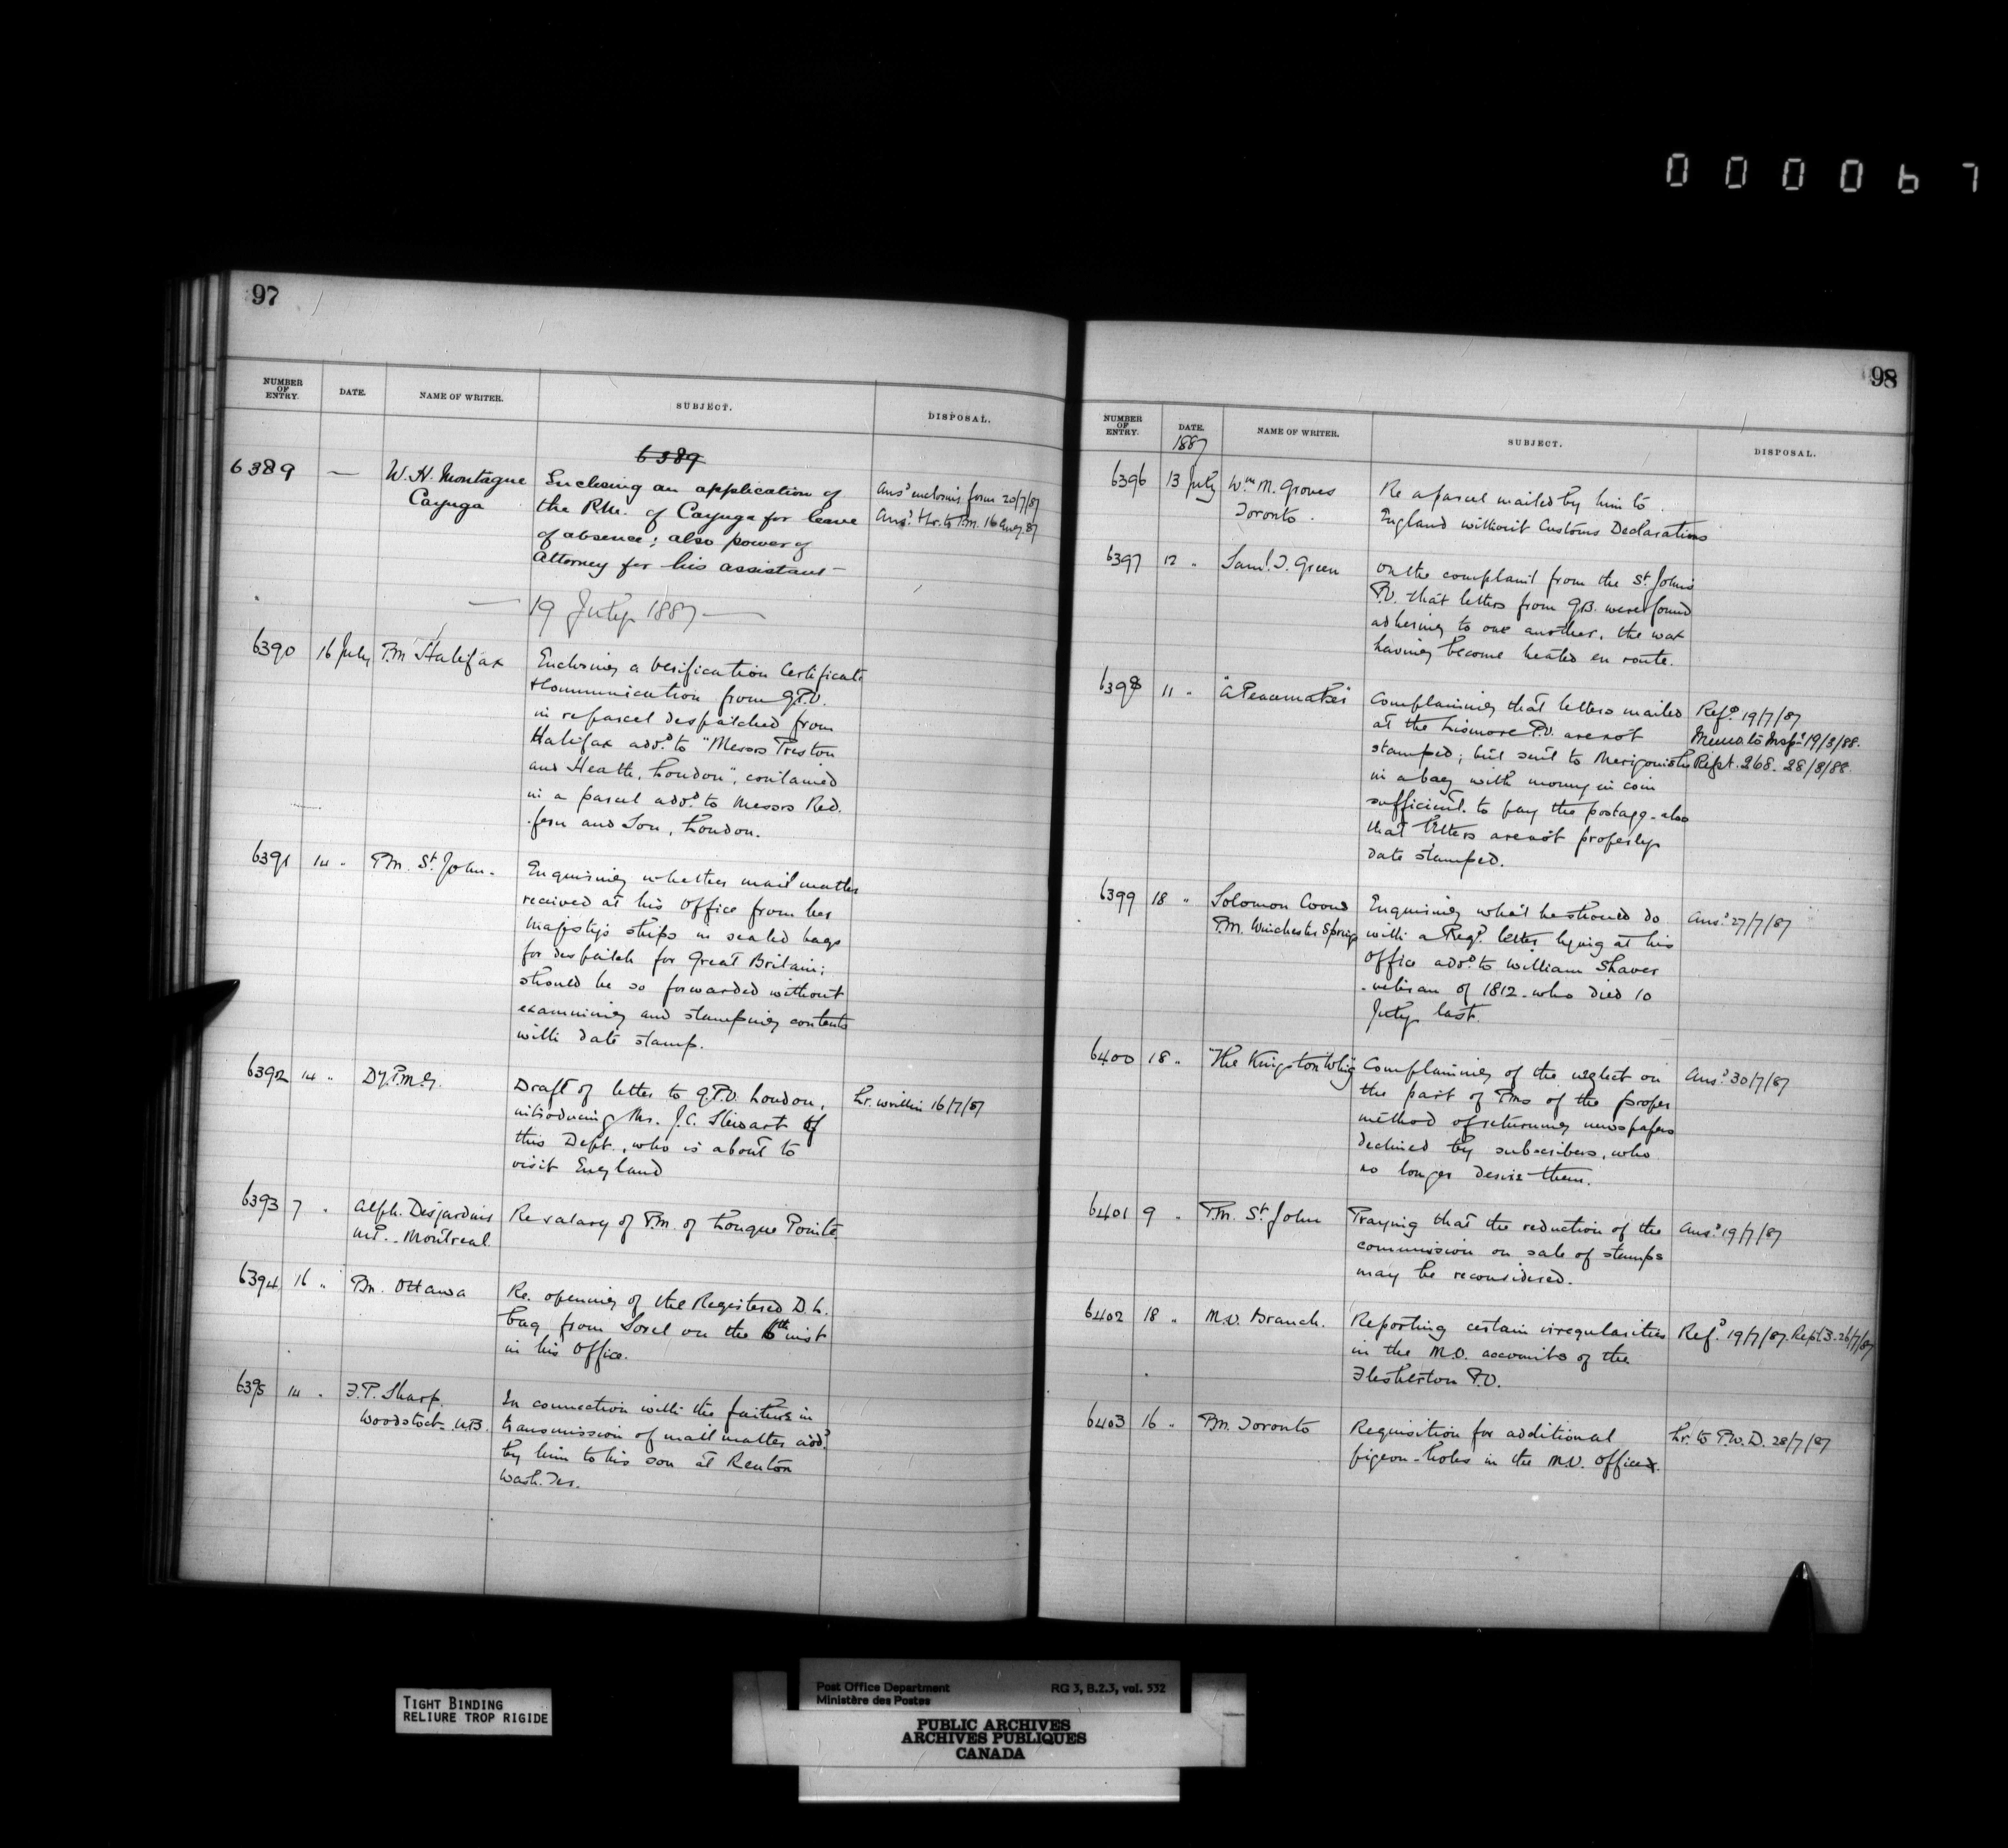 000067
97
NUMBER OF ENTRY.
DATE.
NAME OF WRITER.
SUBJECT.
DISPOSAL.
6389
6389 — W. H. Montague
Cayuga
Enclosing an application of
the P.M. of Cayuga for leave
of absence; also power of
Attorney for his assistant—
Ansd enclosing form 20/7/87
Ansd thr. to P.M. 16 Aug. 87
— 19 July 1887 —
6390 16 July P.M. Halifax
Enclosing a Verification Certificate
& communication from G.P.O.
in re parcel despatched from
Halifax addd to "Messrs Preston
and Heath, London", contained
in a parcel addd to Messrs Red-
-fern and Son, London.
6391 14 " P.M. St John.
Enquiring whether mail matter
received at his Office from her
Majesty's ships in sealed bags
for despatch for Great Britain;
should be so forwarded without
examining and stamping contents
with date stamp.
6392 14 " Dy. P.M.G.
Draft of letter to G.P.O. London,
introducing Mr. J.C. Stewart of
this Dept., who is about to
visit England
Lr. written 16/7/87
6393 7 " Alph. Desjardins
M.P. Montreal
Re salary of P.M. of Longue Pointe
6394 16 " P.M. Ottawa
Re. opening of the Registered D.L.
bag from Sorel on the 6th inst
in his Office.
6395 14 " F.P. Sharp.
Woodstock N.B.
In connection with the failure in
transmission of mail matter addd
by him to his son at Renton
Wash. Ter.
98
NUMBER OF ENTRY.
DATE.
NAME OF WRITER.
SUBJECT.
DISPOSAL.
1887
6396 13 July Wm M. Groves
Toronto.
Re a parcel mailed by him to
England without Customs Declarations
6397 12 " Saml. T. Green
On the complaint from the St Johns
P.O. that letters from G.B. were found
adhering to one another, the wax
having become heated en route.
6398 11 " "A Peacemaker"
Complaining that letters mailed
at the Lismore P.O. are not
stamped; but sent to Merigonishe
in a bag with money in coin
sufficient to pay the postage – also
that letters are not properly
date stamped.
Refd 19/7/87
Memo. to Inspr 19/3/88.
Rept. 268. 28/3/88.
6399 18 " Solomon Coons
P.M. Winchester Springs
Enquiring what he should do
with a Regd. letter lying at his
Office addd to William Shaver
- veteran of 1812 - who died 10
July last.
Ansd 27/7/87
6400 18 " "The Kingston Whig"
Complaining of the neglect on
the part of P.Ms of the proper
method of returning newspapers
declined by subscribers, who
no longer desire them.
Ansd 30/7/87
6401 9 " P.M. St John
Praying that the reduction of the
commission on sale of stamps
may be reconsidered.
Ansd 19/7/87
6402 18 " M.O. Branch.
Reporting certain irregularities
in the M.O. accounts of the
Flesherton P.O.
Refd 19/7/87. Rept. 3. 26/7/87
6403 16 " P.M. Toronto
Requisition for additional
pigeon-holes in the M.O. Office.
Lr. to P.W.D. 28/7/87
TIGHT BINDING
RELIURE TROP RIGIDE
Post Office Department
Ministère des Postes
RG 3, B.2.3, vol. 532
PUBLIC ARCHIVES
ARCHIVES PUBLIQUES
CANADA